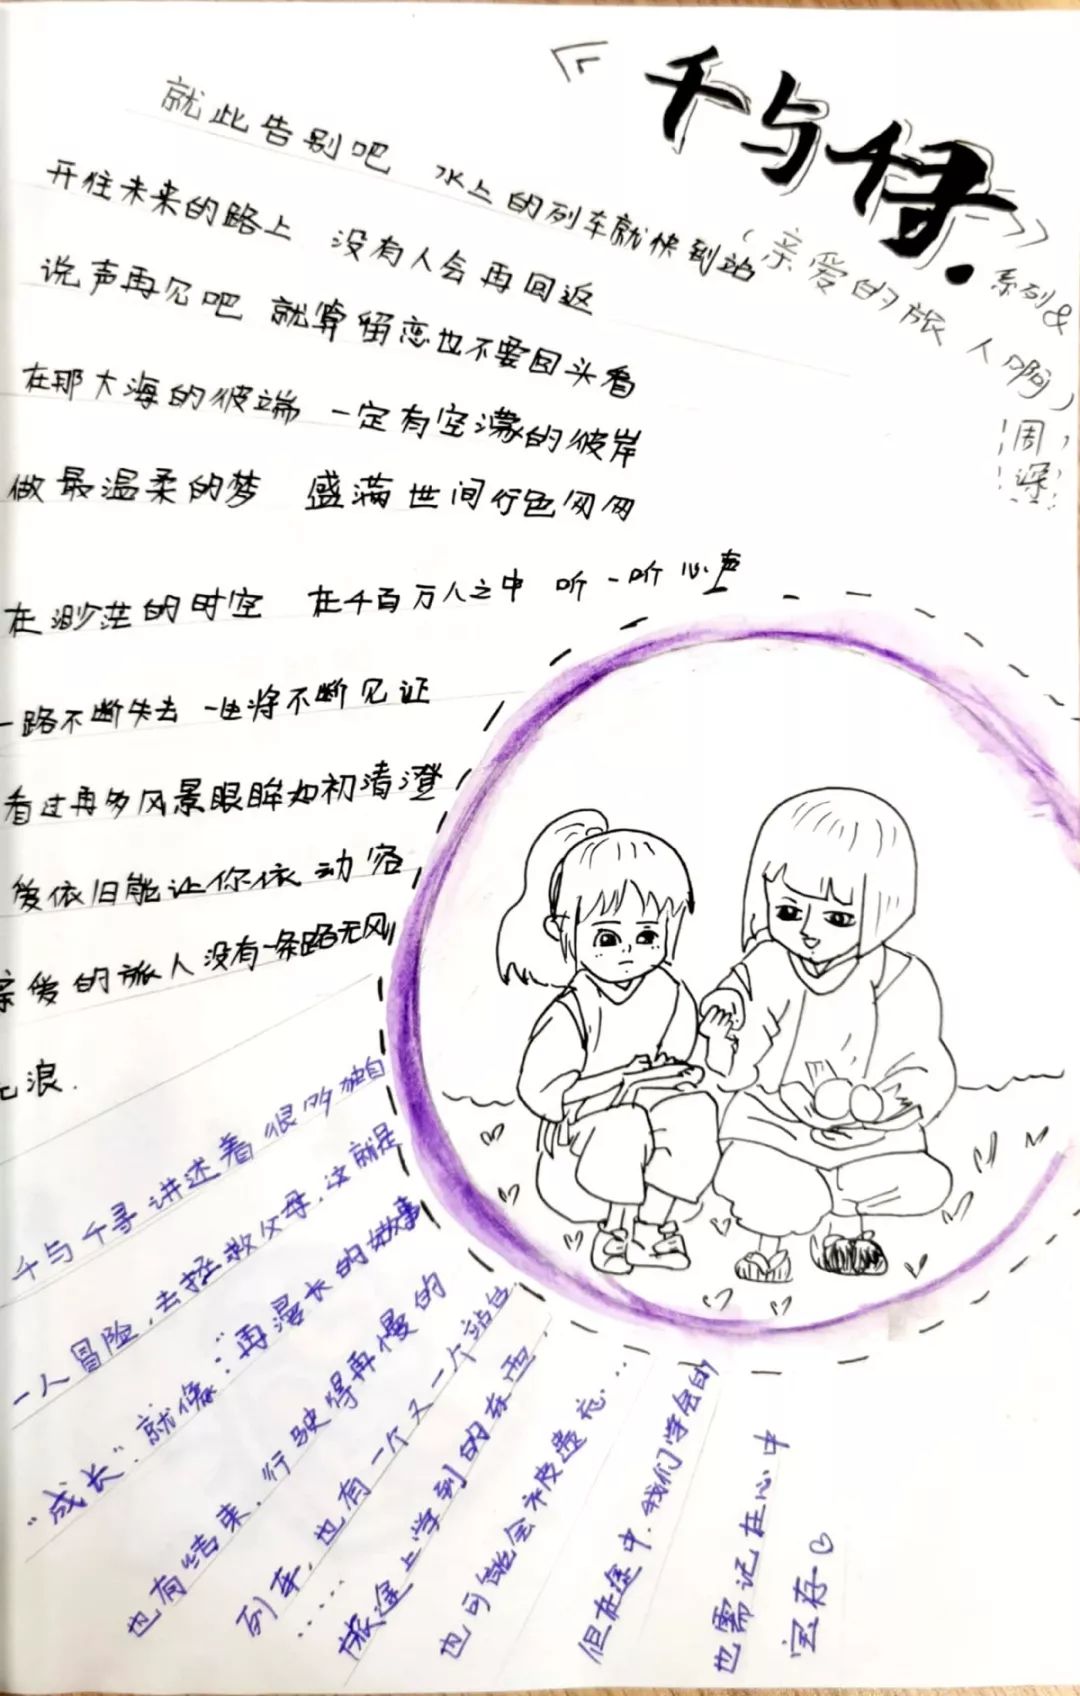 《千与千寻》系列&
(亲爱的旅人啊)
周深
就此告别吧 水上的列车就快到站
开住未来的路上 没有人会再回返
说声再见吧 就算留恋也不要回头看
在那大海的彼端 一定有空濛的彼岸
做最温柔的梦 盛满世间行色匆匆
在渺茫的时空 在千百万人之中 听一听心声
一路不断失去 一生将不断见证
看过再多风景眼眸如初清澄
爱依旧能让你我动容
亲爱的旅人没有一条路无风
无浪.
千与千寻讲述着很多独自
一人冒险,去拯救父母,这就是
"成长".就像:"再漫长的故事
也有结束,行驶得再慢的
列车,也有一个又一个站台
……
旅途上学到的东西,
也可能会被遗忘…
但在途中,我们学会的
也需记在心中
宝存♡